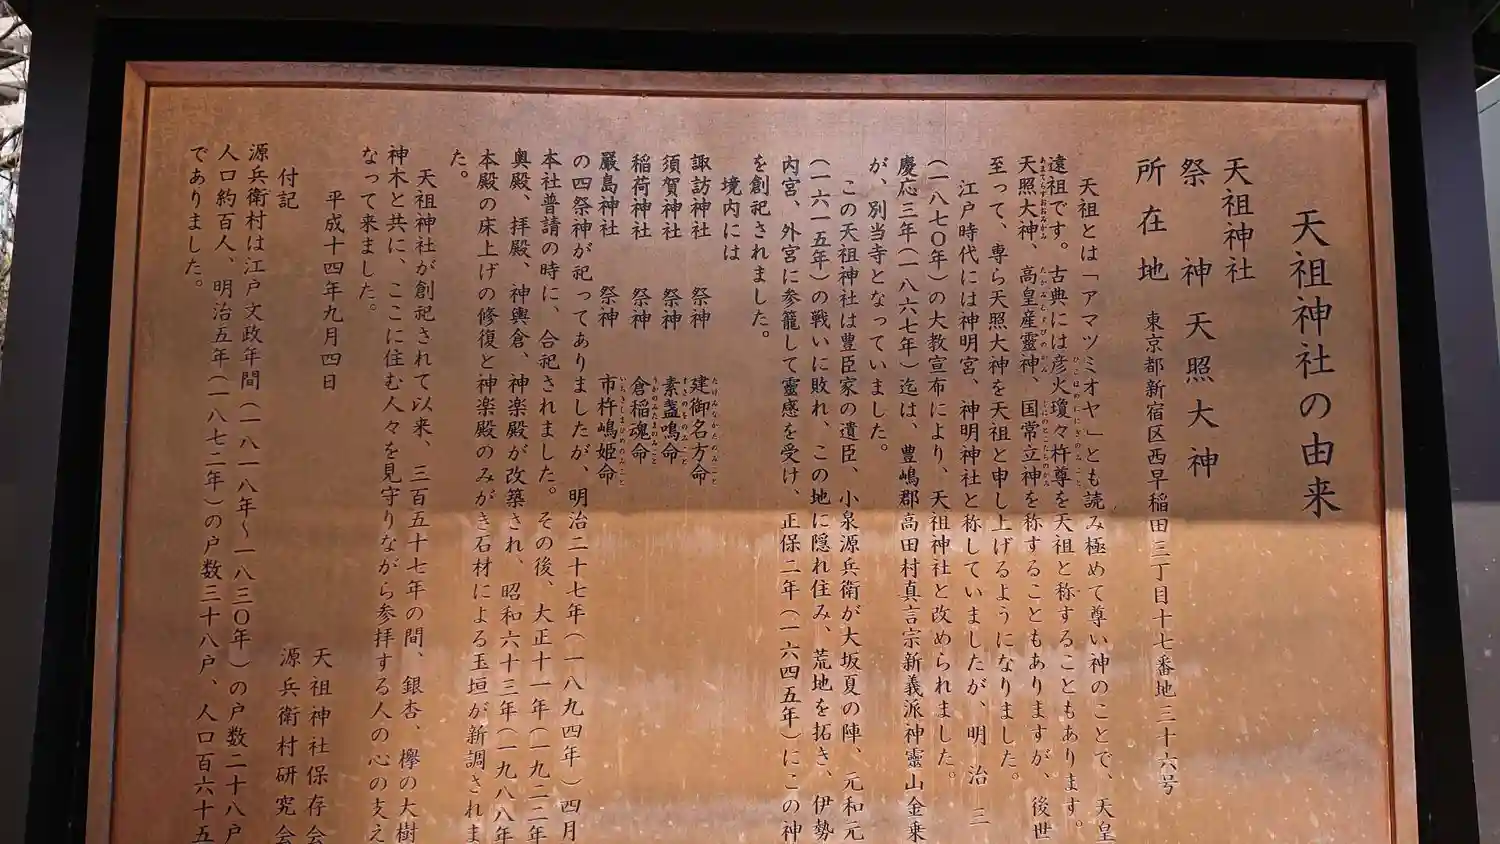 天祖神社の由来
天祖神社
祭神 天照大神
所在地 東京都新宿区西早稲田三丁目十七番地三十六号
天祖とは「アマツミオヤ」とも読み極めて尊い神のことで、天皇
遠祖です。古典には彦火瓊々杵尊を天祖と称することもあります。
天照大神、高皇産靈神、国常立神を称することもありますが、後世
至って、専ら天照大神を天祖と申し上げるようになりました。
江戸時代には神明宮、神明神社と称していましたが、明治三
(一八七〇年)の大教宣布により、天祖神社と改められました。
慶応三年(一八六七年)迄は、豊嶋郡高田村真言宗新義派神靈山金乗
が、別当寺となっていました。
この天祖神社は豊臣家の遺臣、小泉源兵衛が大坂夏の陣、元和元
(一六一五年)の戦いに敗れ、この地に隠れ住み、荒地を拓き、伊勢
内宮、外宮に参籠して靈感を受け、正保二年(一六四五年)にこの神
を創祀されました。
境内には
諏訪神社 祭神 建御名方命
須賀神社 祭神 素盞鳴命
稲荷神社 祭神 倉稲魂命
嚴島神社 祭神 市杵嶋姫命
の四祭神が祀ってありましたが、明治二十七年(一八九四年)四月
本社普請の時に、合祀されました。その後、大正十一年(一九二二年
奥殿、拝殿、神輿倉、神楽殿が改築され、昭和六十三年(一九八八年
本殿の床上げの修復と神楽殿のみがき石材による玉垣が新調されま
た。
天祖神社が創祀されて以来、三百五十七年の間、銀杏、欅の大樹
神木と共に、ここに住む人々を見守りながら参拝する人の心の支え
なって来ました。
平成十四年九月四日
天祖神社保存会
源兵衛村研究会
付記
源兵衛村は江戸文政年間(一八一八年〜一八三〇年)の戸数二十八戸
人口約百人、明治五年(一八七二年)の戸数三十八戸、人口百六十五
でありました。